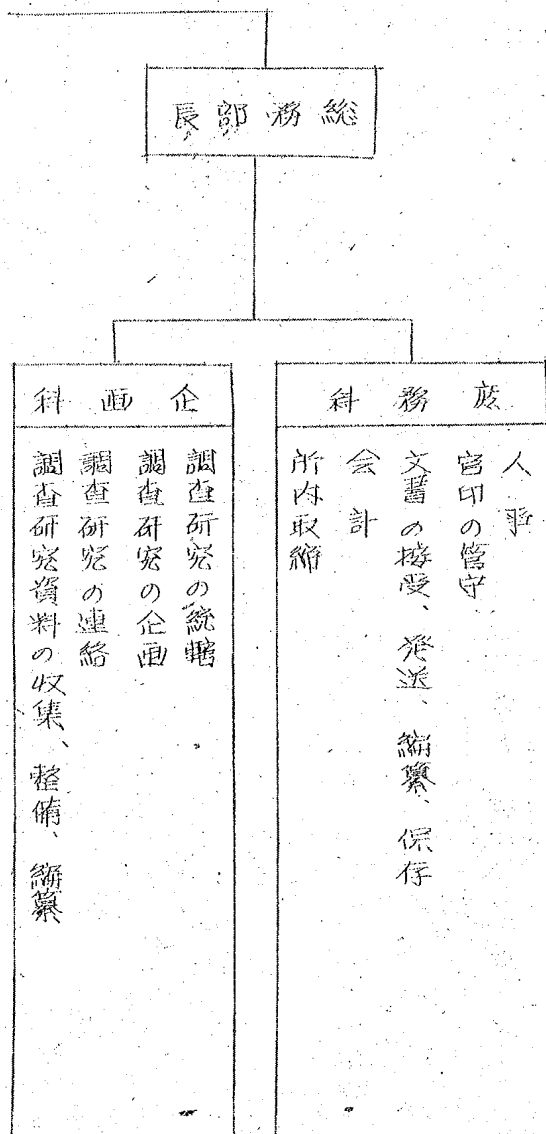 総務部長
庶務科
人事
官印の管守
文書の接受、発送、編纂、保存
会計
所内取締
企画科
調査研究の統轄
調査研究の企画
調査研究の連絡
調査研究資料の収集、整備、編纂